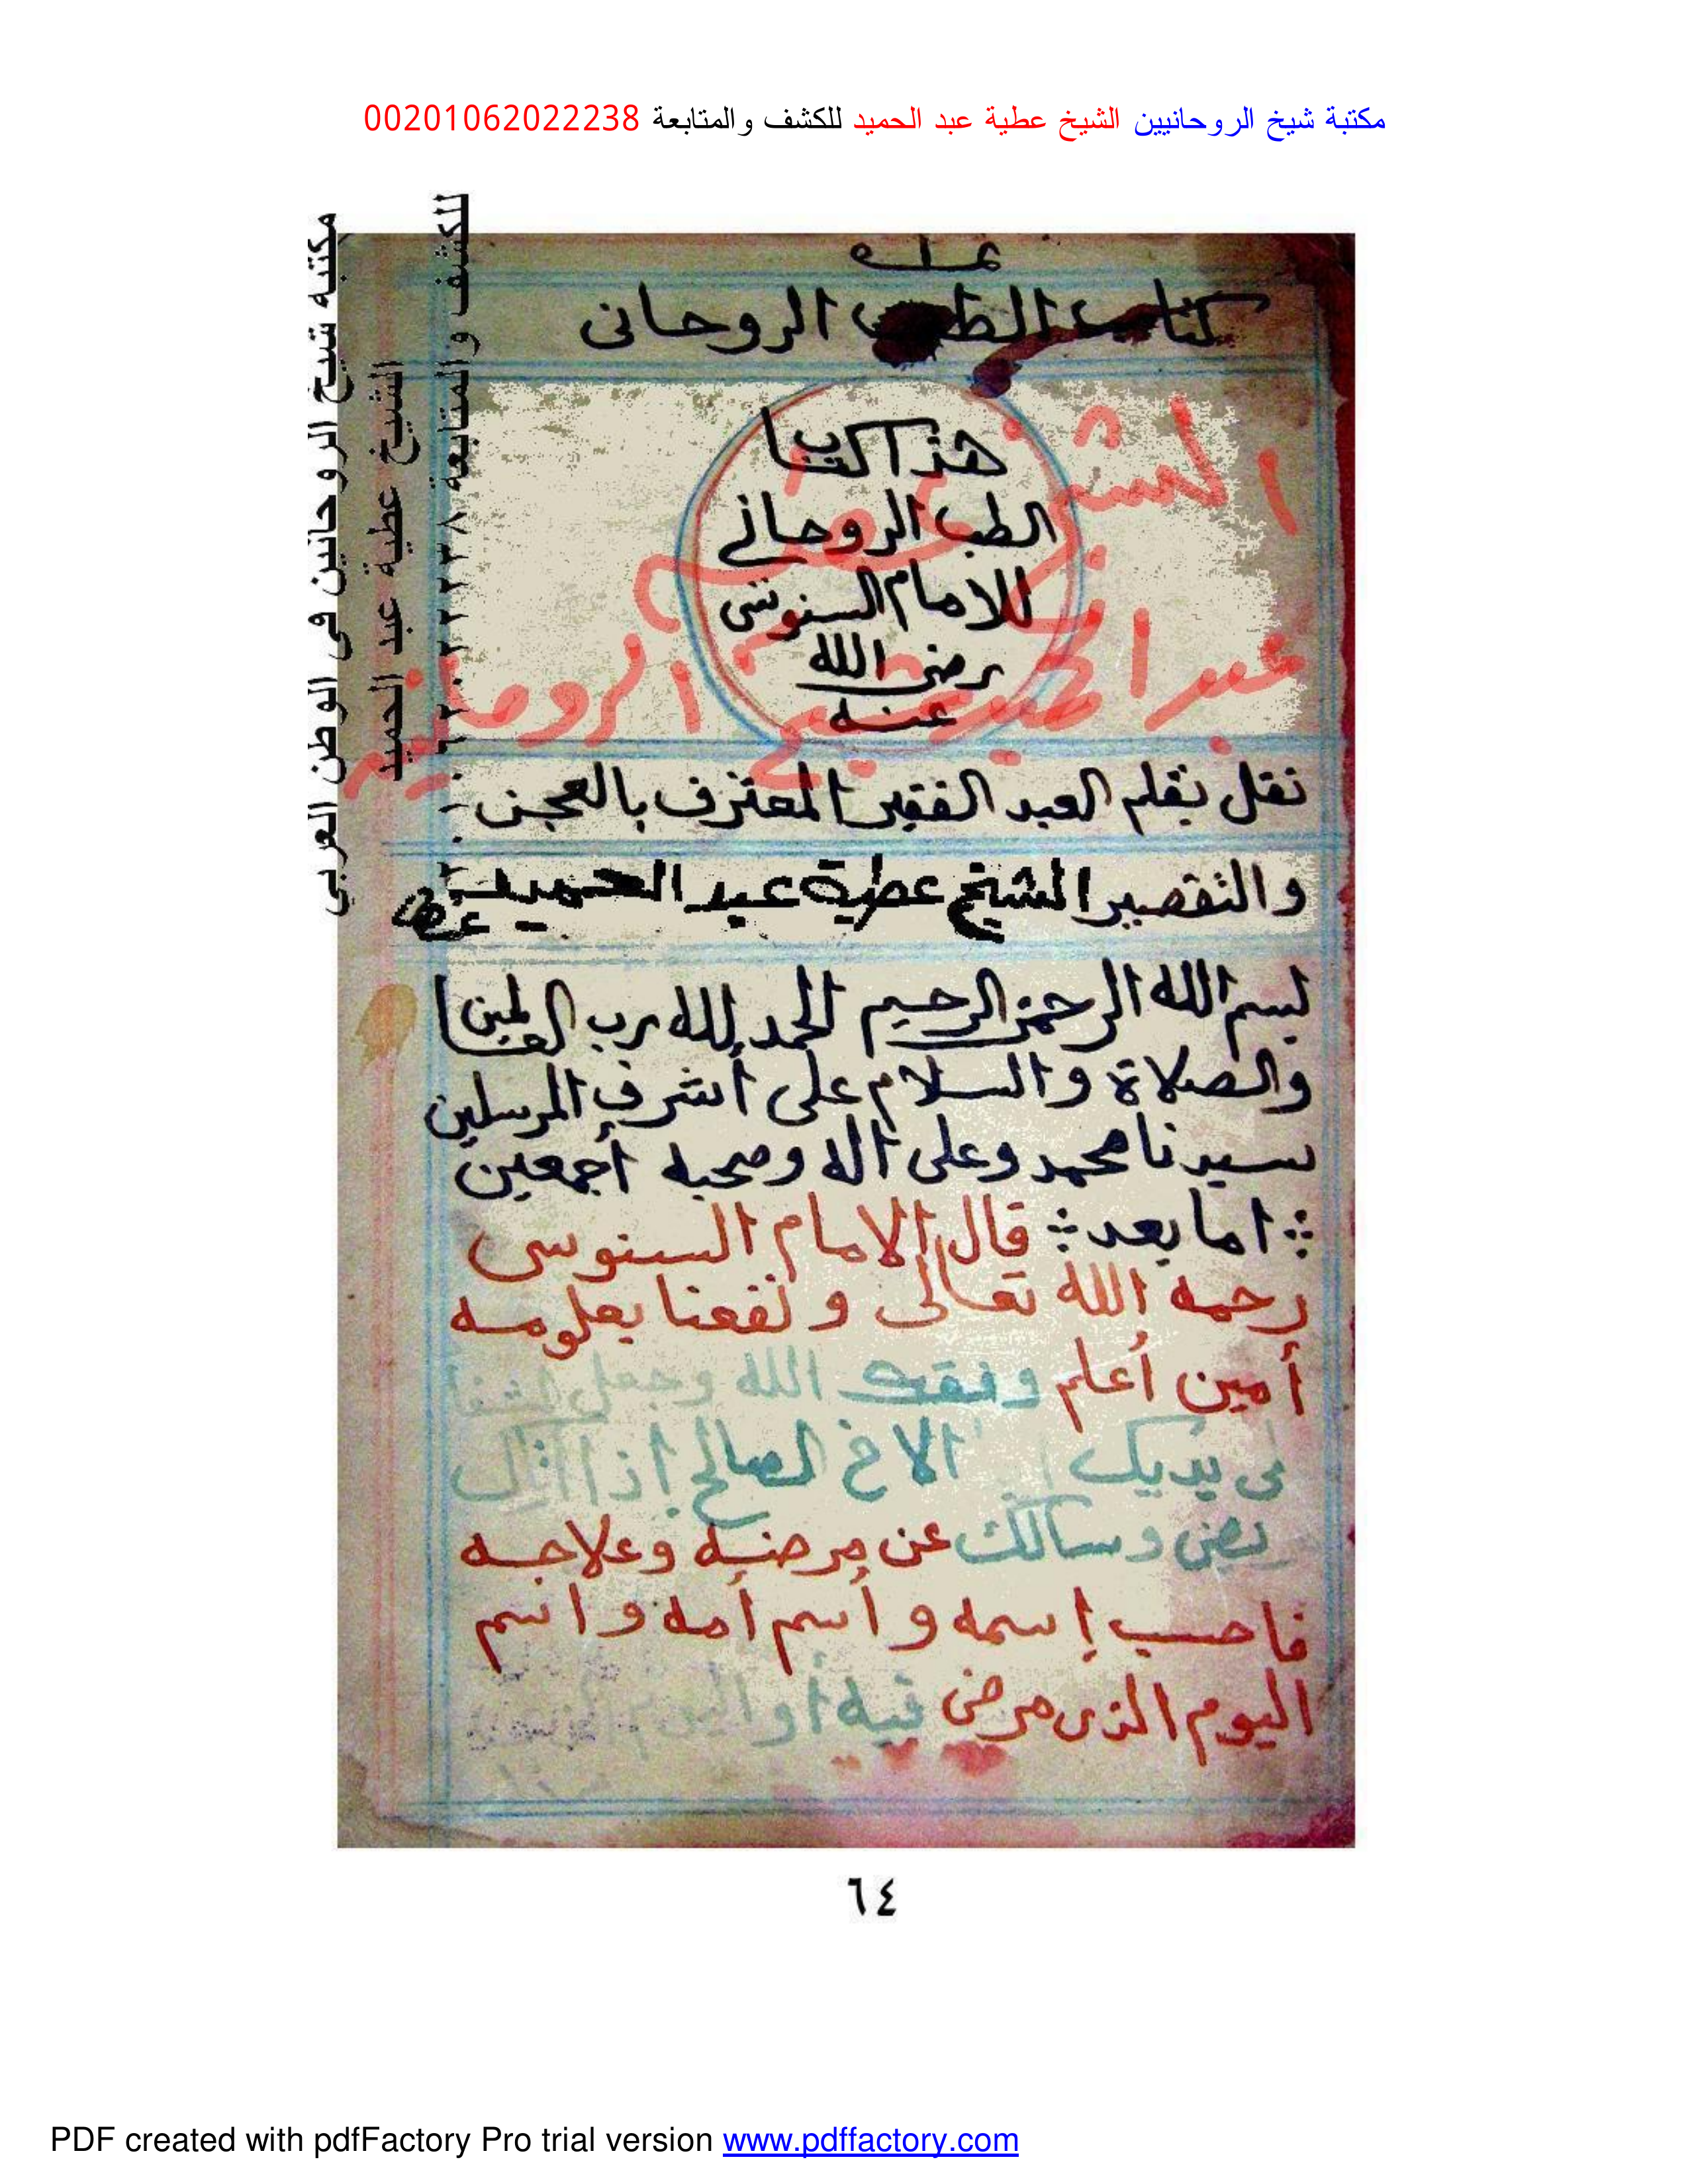 مكتبة شيخ الروحانيين الشيخ عطية عبد الحميد للكشف والمتابعة 00201062022238
كتاب الطب الروحانى
هذا كتاب
الطب الروحاني
للامام السنوسى
رضى الله
عنه
نقل بقلم العبد الفقير المعترف بالعجز
والتقصير الشيخ عطية عبد الحميد
بسم الله الرحمن الرحيم الحمد لله رب العالمين
والصلاة والسلام على أشرف المرسلين
سيدنا محمد وعلى اله وصحبه أجمعين
اما بعد قال الامام السنوسى
رحمه الله تعالى ونفعنا بعلومه
أمين أعلم وفقك الله وجعل الشفا
فى يديك الاخ الصالح إذا اتاك
وسالك عن مرضه وعلاجه
فاحسب إسمه وأسم أمه واسم
اليوم الذى مرض فيه أو اليوم
مكتبة شيخ الروحانين فى الوطن العربى
الشيخ عطية عبد الحميد
للكشف والمتابعة
الشيخ عطية
عبد الحميد شيخ الروحانيين
٦٤
PDF created with pdfFactory Pro trial version www.pdffactory.com